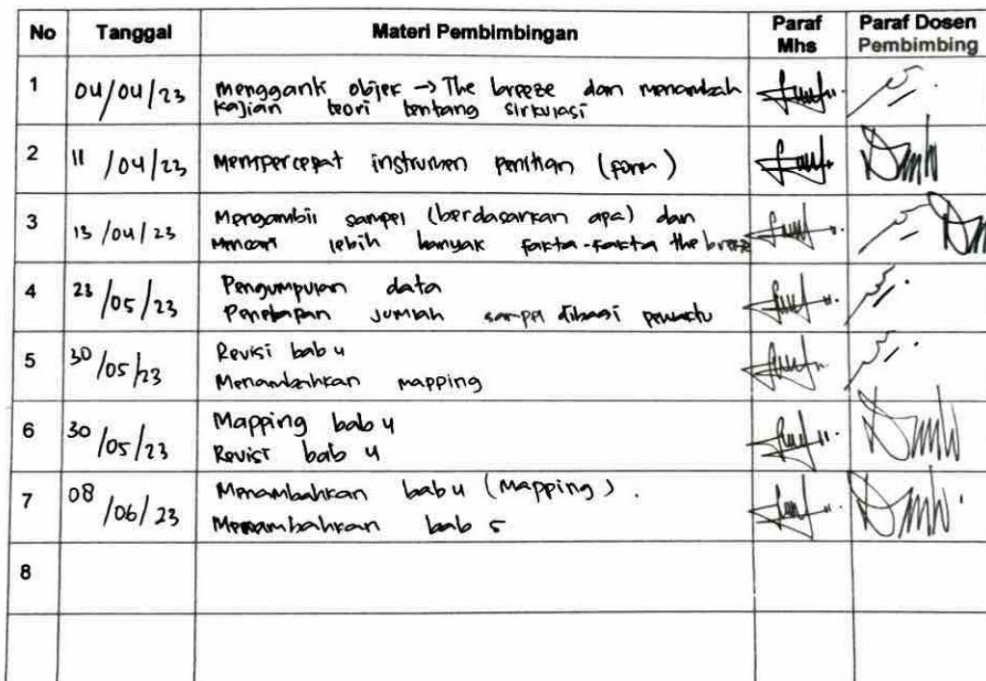 No Tanggal Materi Pembimbingan Paraf Mhs Paraf Dosen Pembimbing
1 04/04/23 mengganti objek → The breeze dan menambah
kajian teori tentang sirkulasi
2 11/04/23 Mempercepat instrumen (form)
3 13/04/23 Mengambil sampel (berdasarkan apa) dan
Mencari lebih banyak fakta-fakta the breeze
4 23/05/23 Pengumpulan data
Penetapan jumlah sampel dibagi
5 30/05/23 Revisi bab 4
Menambahkan mapping
6 30/05/23 Mapping bab 4
Revisi bab 4
7 08/06/23 Menambahkan bab 4 (Mapping).
Menambahkan bab 5
8